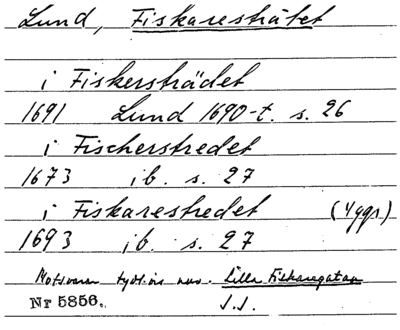 Lund, Fiskaresträtet
i Fiskersträdet
1691 Lund 1690-t. s. 26
i Fischerstredet
1673 ib. s. 27
i Fiskarestredet (4 ggr)
1693 ib. s. 27
Motsvarar tydl. nuv. Lilla Fiskaregatan
Nr 5856. J.J.